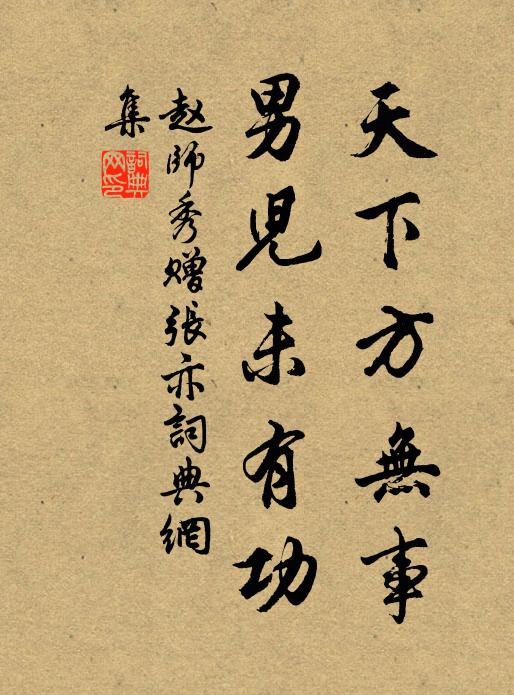 天下方無事
男児未有功
赵師秀赠張亦詞典網
集
詞典
网印